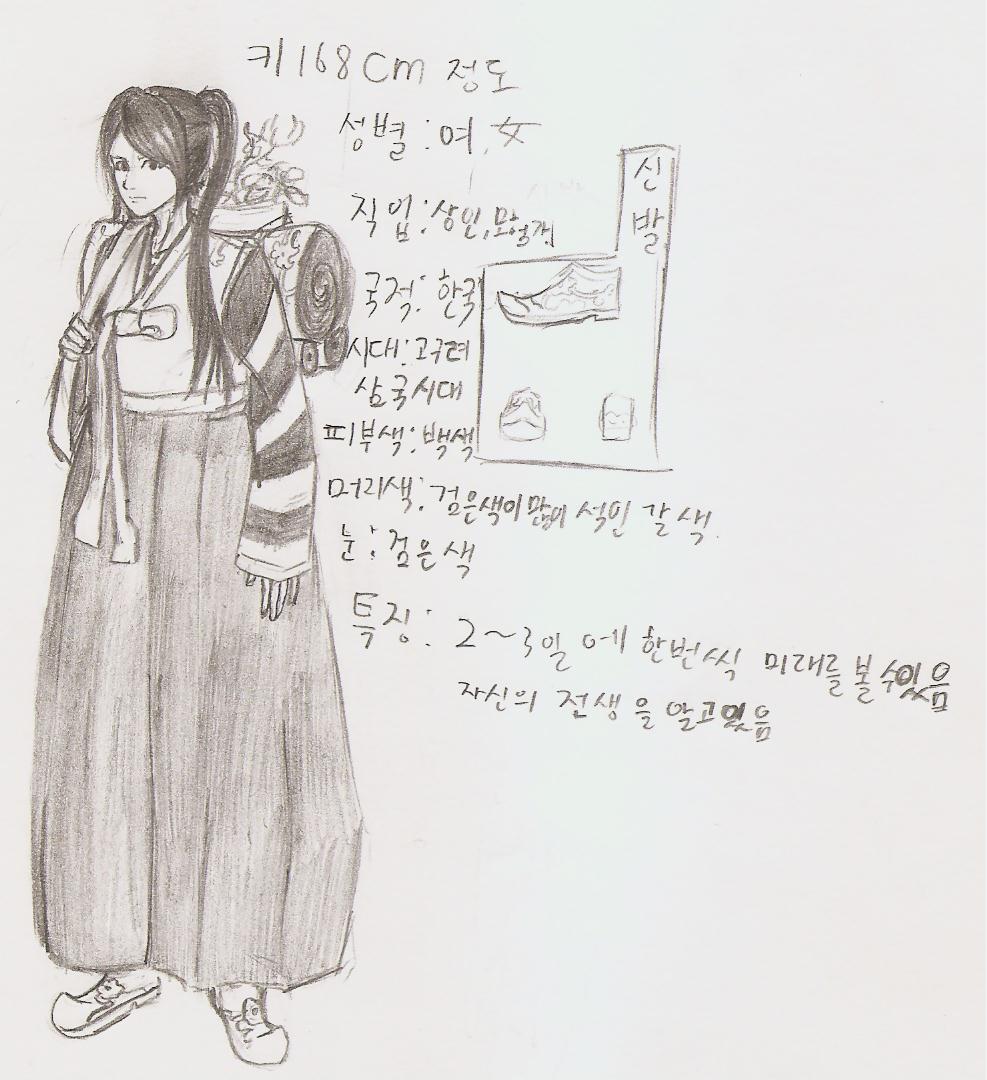 키 168 Cm 정도
성별 : 여, 女
직업 : 상인, 모험가
국적 : 한국
시대 : 고구려
삼국시대
피부색 : 백색
머리색 : 검은색이 많이 석인 갈색.
눈 : 검은색
특징 : 2~3일에 한번씩 미래를 볼수있음
자신의 전생을 알고있음
신발